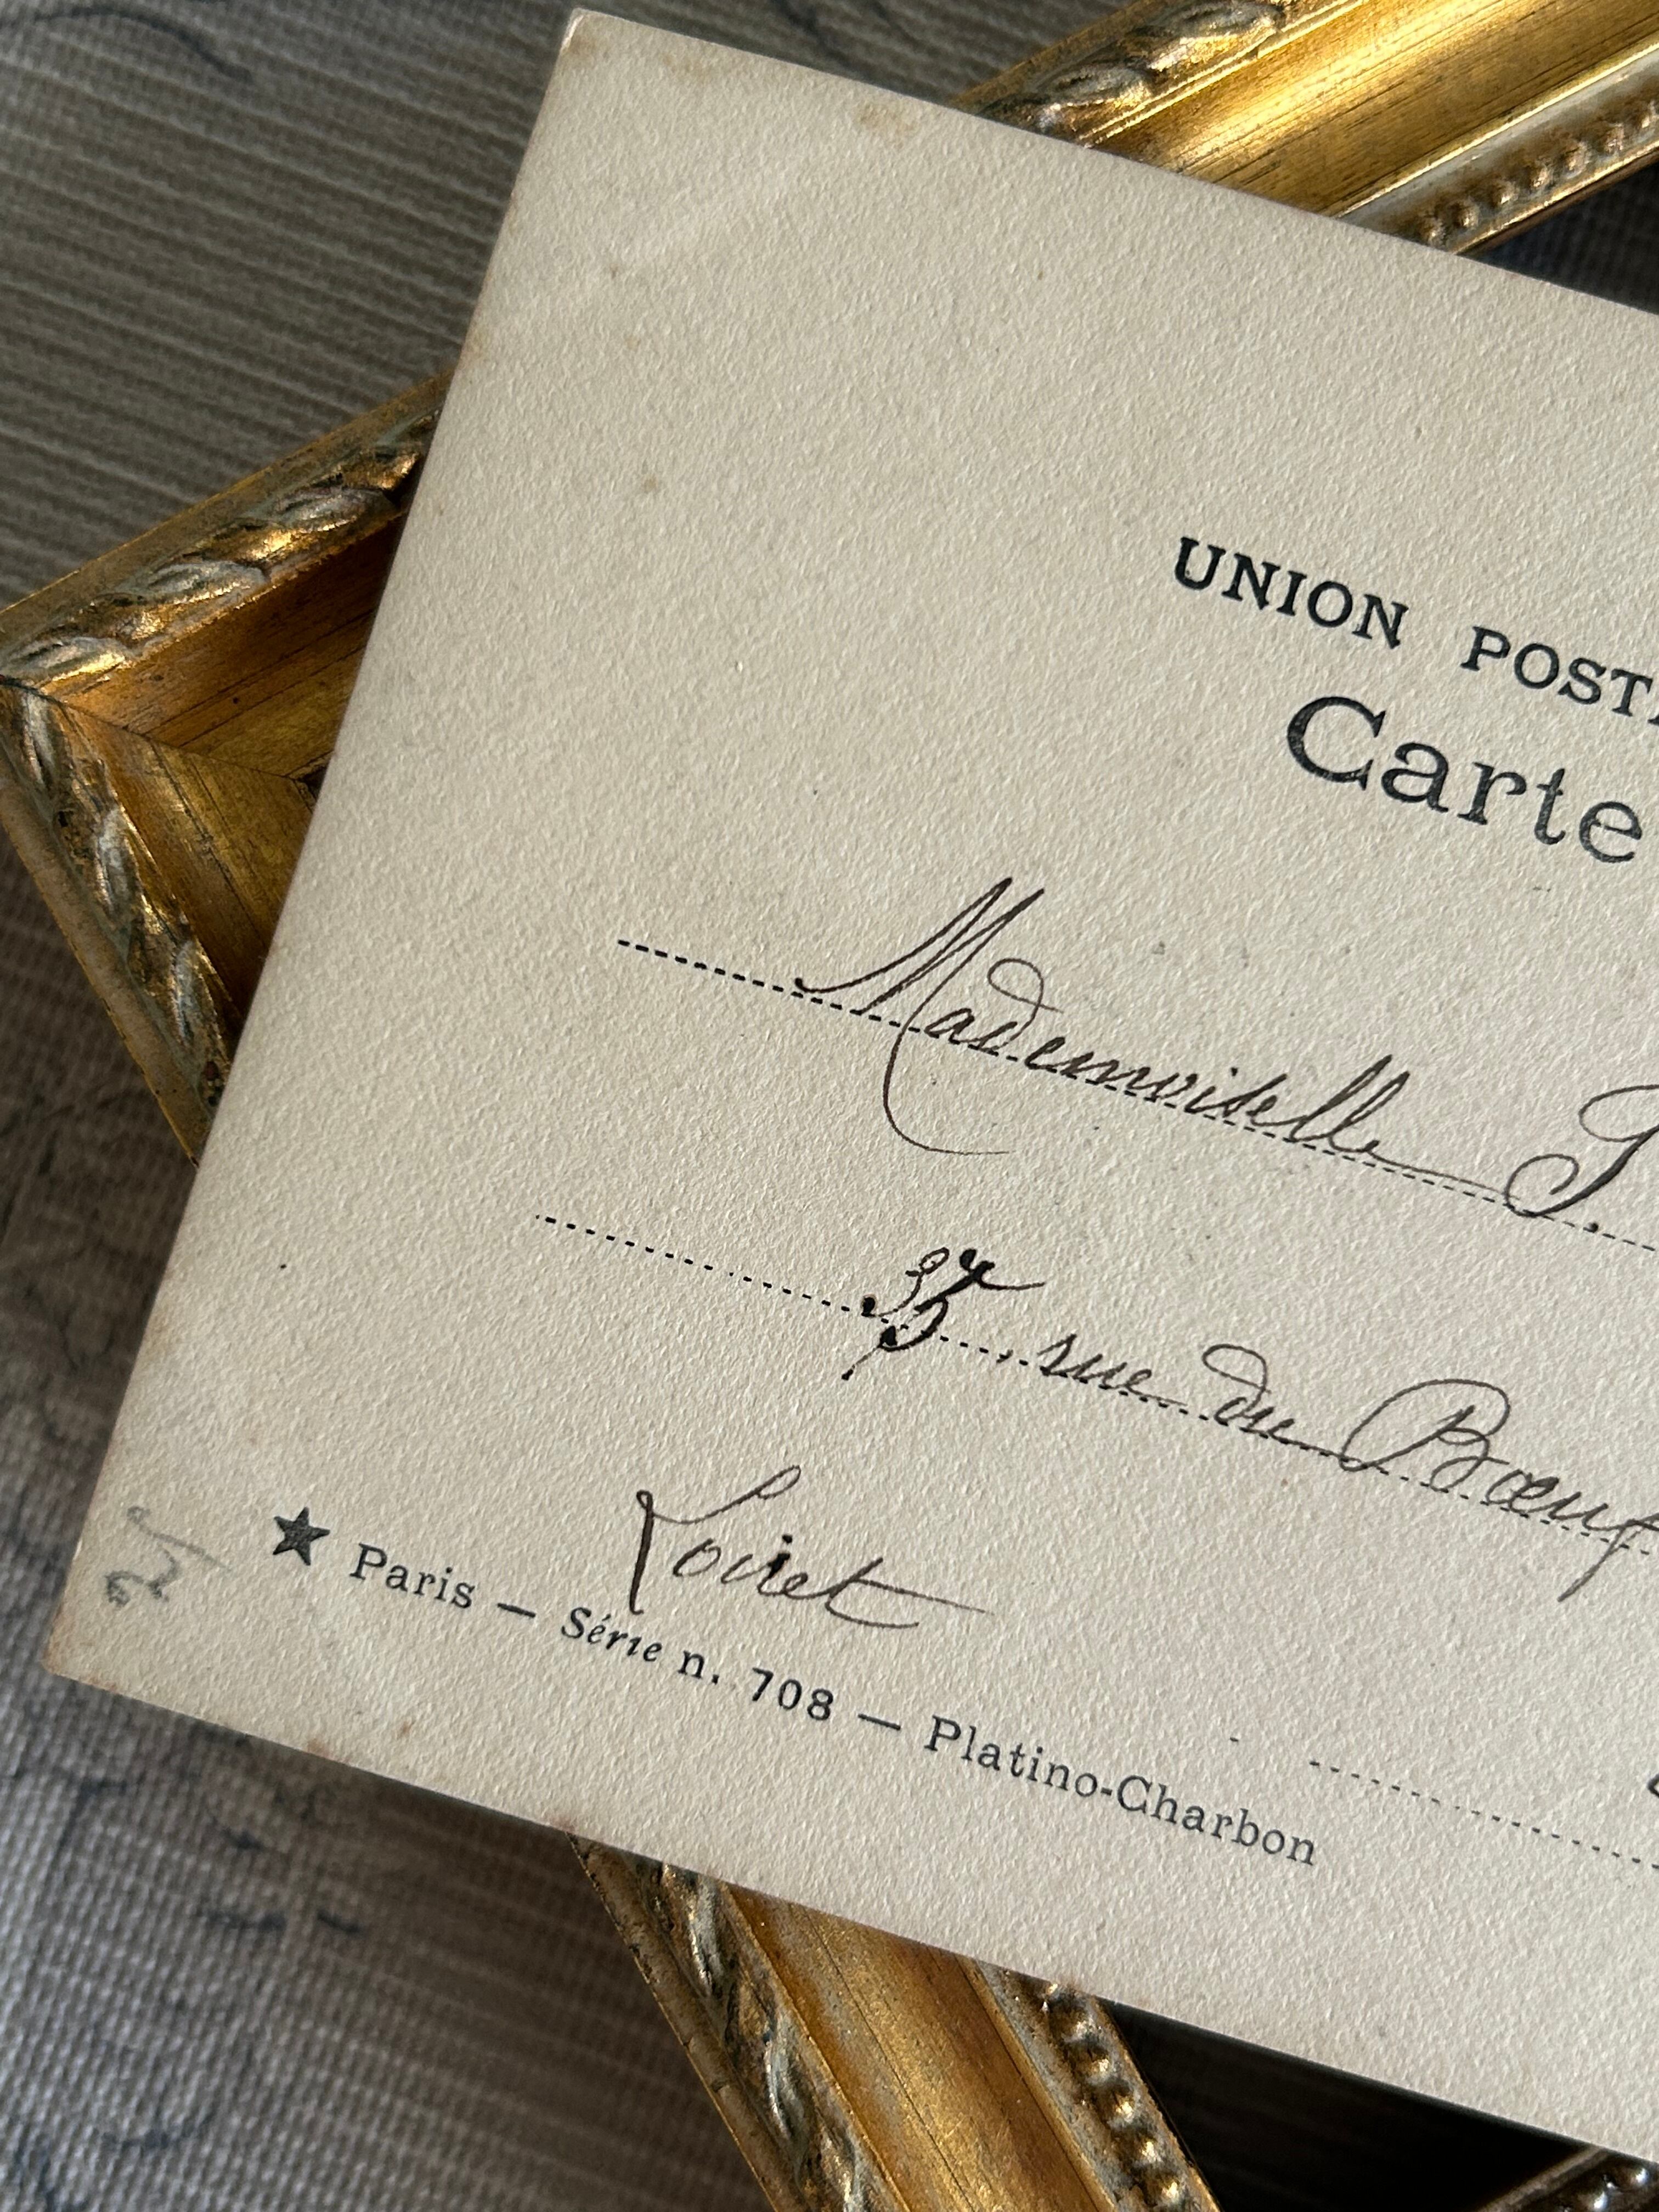 UNION POSTA
Carte
Mademoiselle
rue du Bœuf
Loiret
★ Paris — Série n. 708 — Platino-Charbon